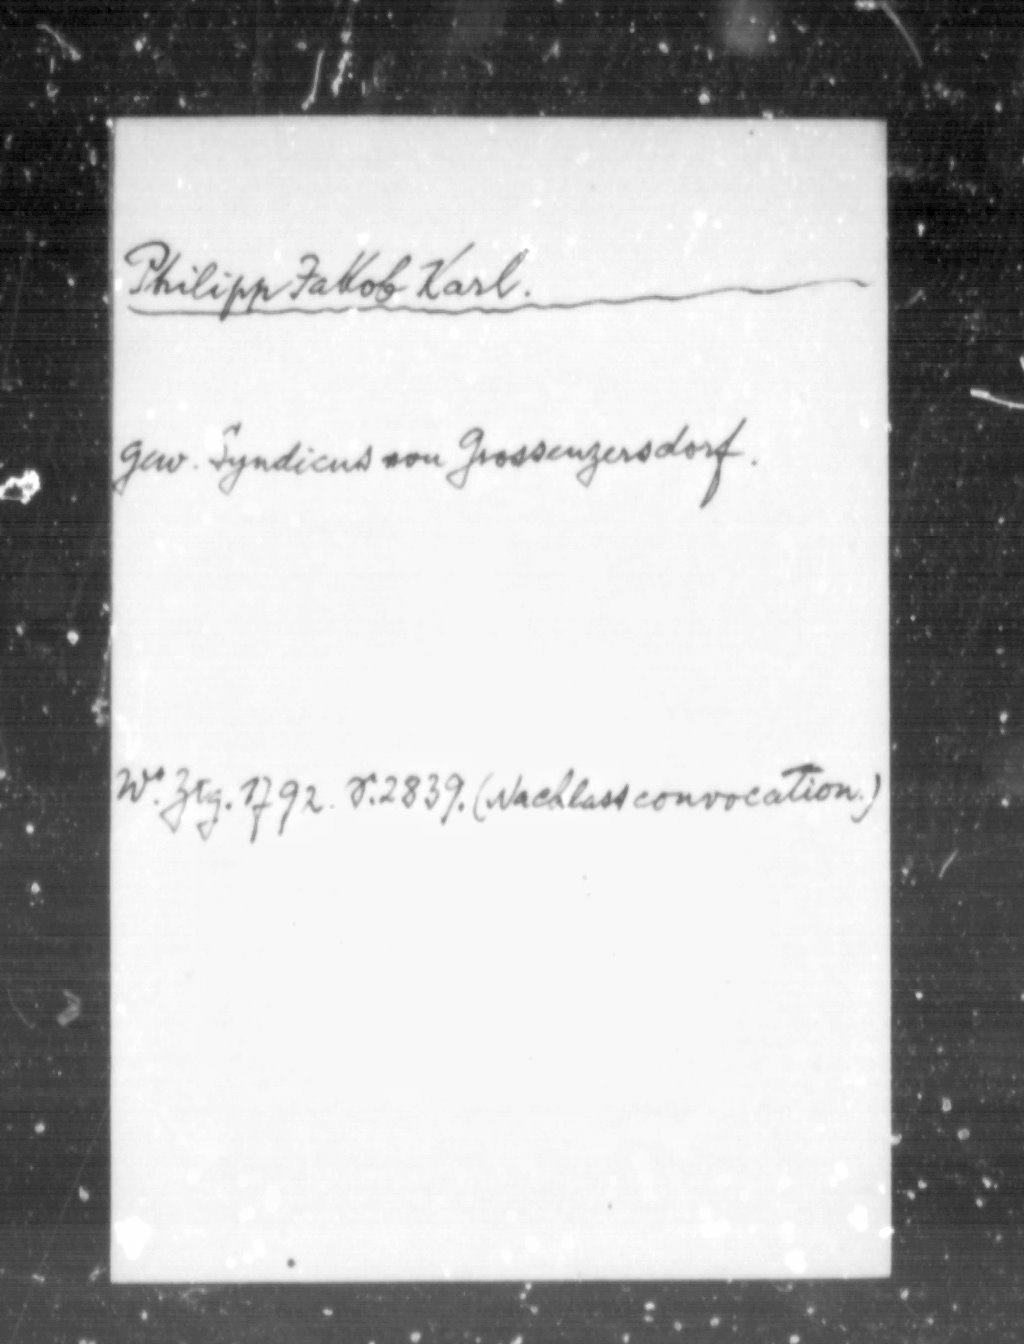 Philipp Jakob Karl.
gew. Syndicus von Grossenzersdorf.
Wr. Ztg. 1792. S. 2839. (Nachlassconvocation.)